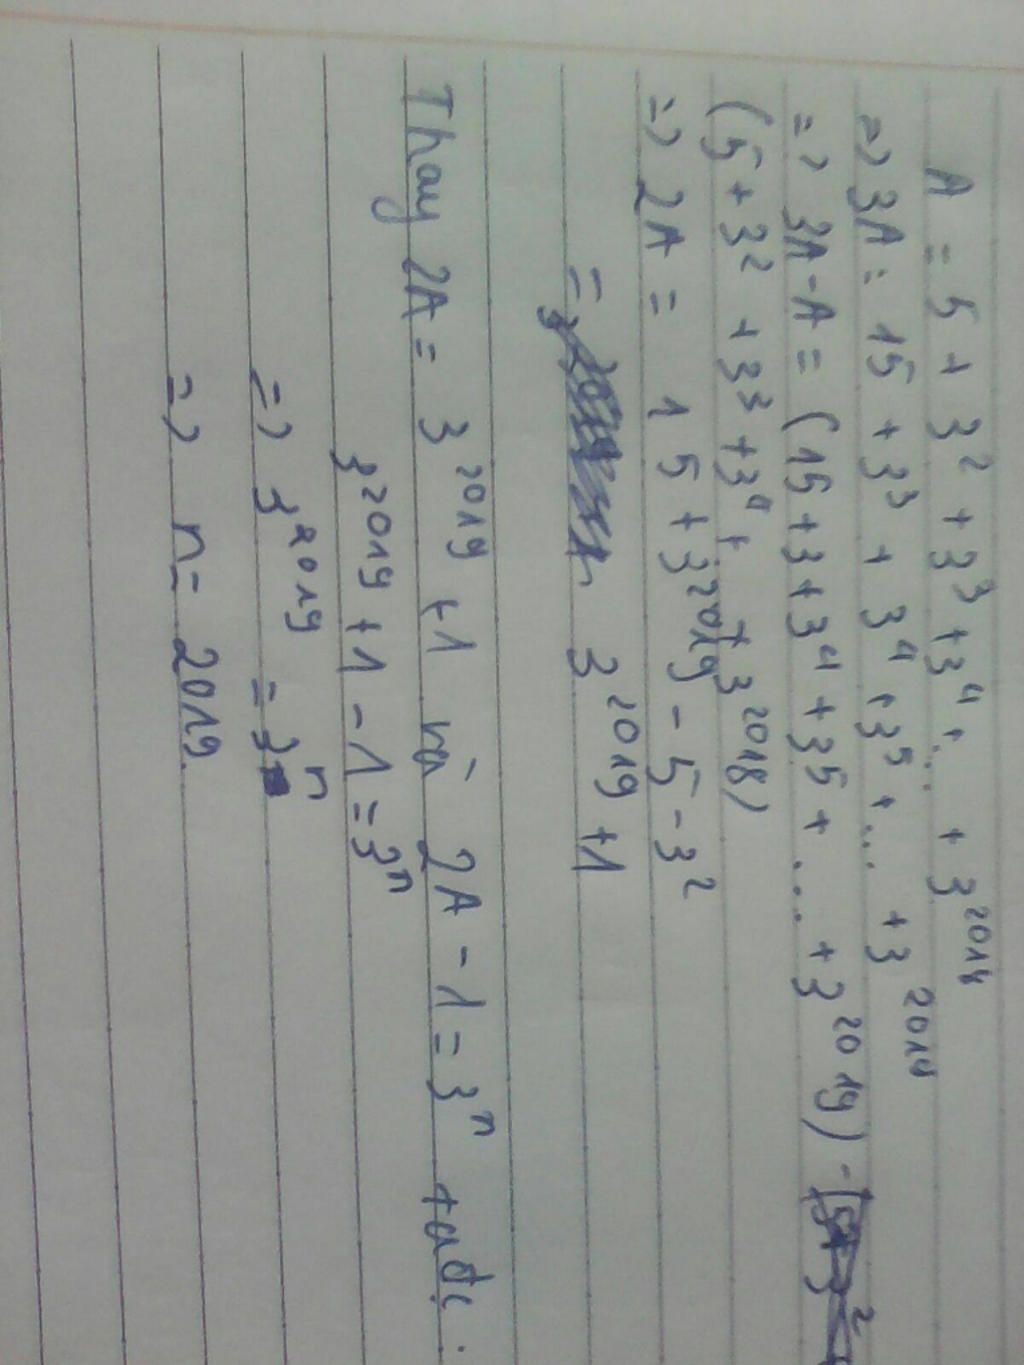 A = 5 + 3² + 3³ + 3⁴ + ... + 3²⁰¹⁸
=> 3A = 15 + 3³ + 3⁴ + 3⁵ + ... + 3²⁰¹⁸
=> 3A - A = (15 + 3 + 3⁴ + 3⁵ + ... + 3²⁰¹⁹) -
(5 + 3² + 3³ + 3⁴ + ... + 3²⁰¹⁸)
=> 2A = 15 + 3²⁰¹⁹ - 5 - 3²
= 3²⁰¹⁹ + 1
Thay 2A = 3²⁰¹⁹ + 1 và 2A - 1 = 3ⁿ ta đc :
3²⁰¹⁹ + 1 - 1 = 3ⁿ
=> 3²⁰¹⁹ = 3ⁿ
=> n = 2019